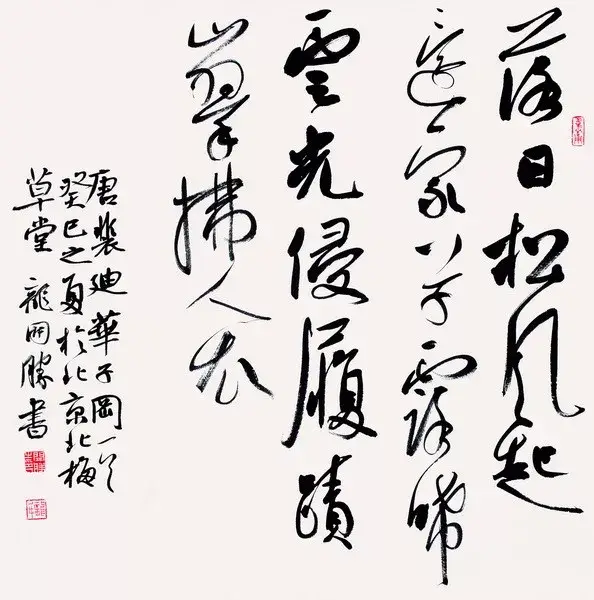 落日松風起
還家草露晞
雲光侵履蹟
山翠拂人衣
唐裴迪華子岡一首
癸巳之夏於北京北梅
草堂 龍開勝書